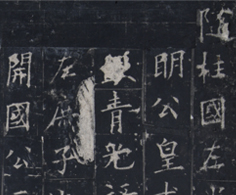 隨柱國左
明公皇
銀青光
左庶子
開國公